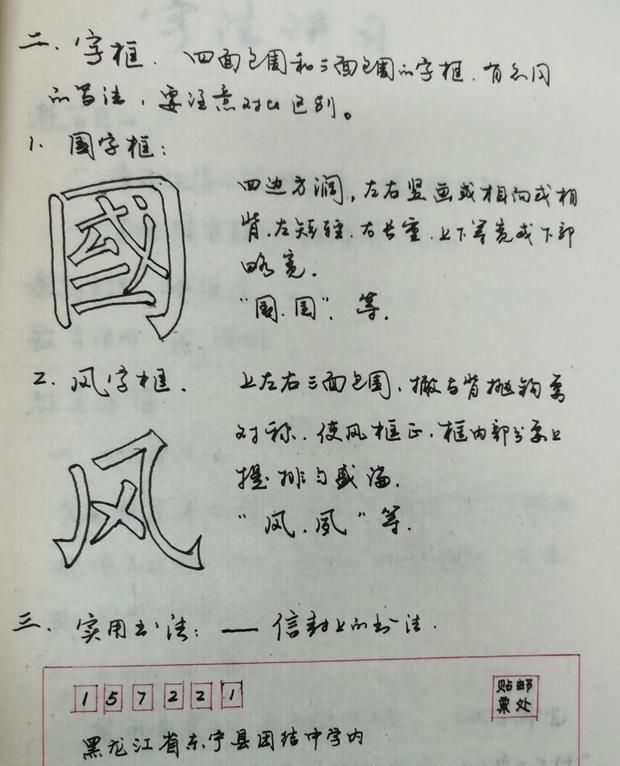 二、字框. 四面包围和三面包围的字框.有不同
的写法,要注意对比区别。
1. 國字框:
國
四边方润,左右竖画或相向或相
背.左短轻.右长重.上下等宽或下部
略宽.
“国.国”. 等.
2. 风字框.
风
上左右三面包围,撇与背抛钩要
对称.使风框正.框内部分要上
提 排匀
“风.凮”等.
三. 实用书法: — 信封上的书法.
1 5 7 2 2 1
贴邮
票处
黑龙江省东宁县团结中学内